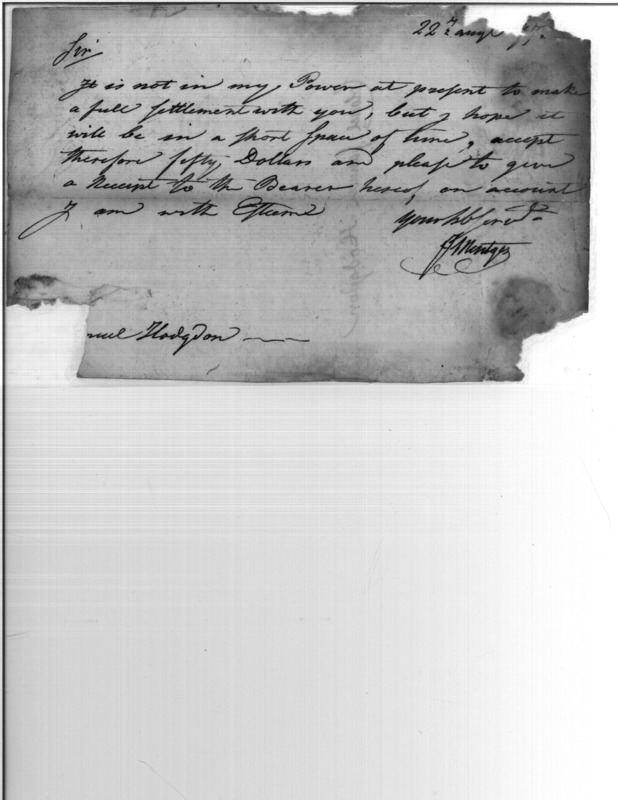 22d augt 97.
Sir
It is not in my Power at present to make
a full settlement with you, but I hope it
will be in a short space of time, accept
therefore fifty Dollars and please to give
a Receipt to the Bearer hereof on account
I am with Esteem your hble serv.t
J Mentges
muel Hodgdon